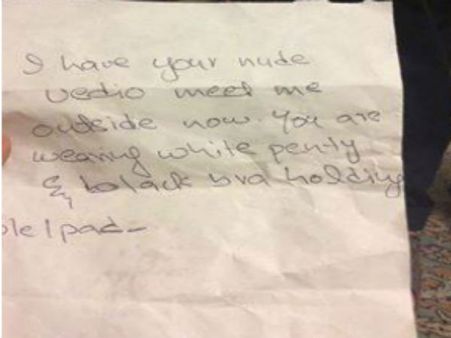 I have your nude
vedio meet me
outside now. You are
wearing white penty
& black bra holding
ple Ipad-